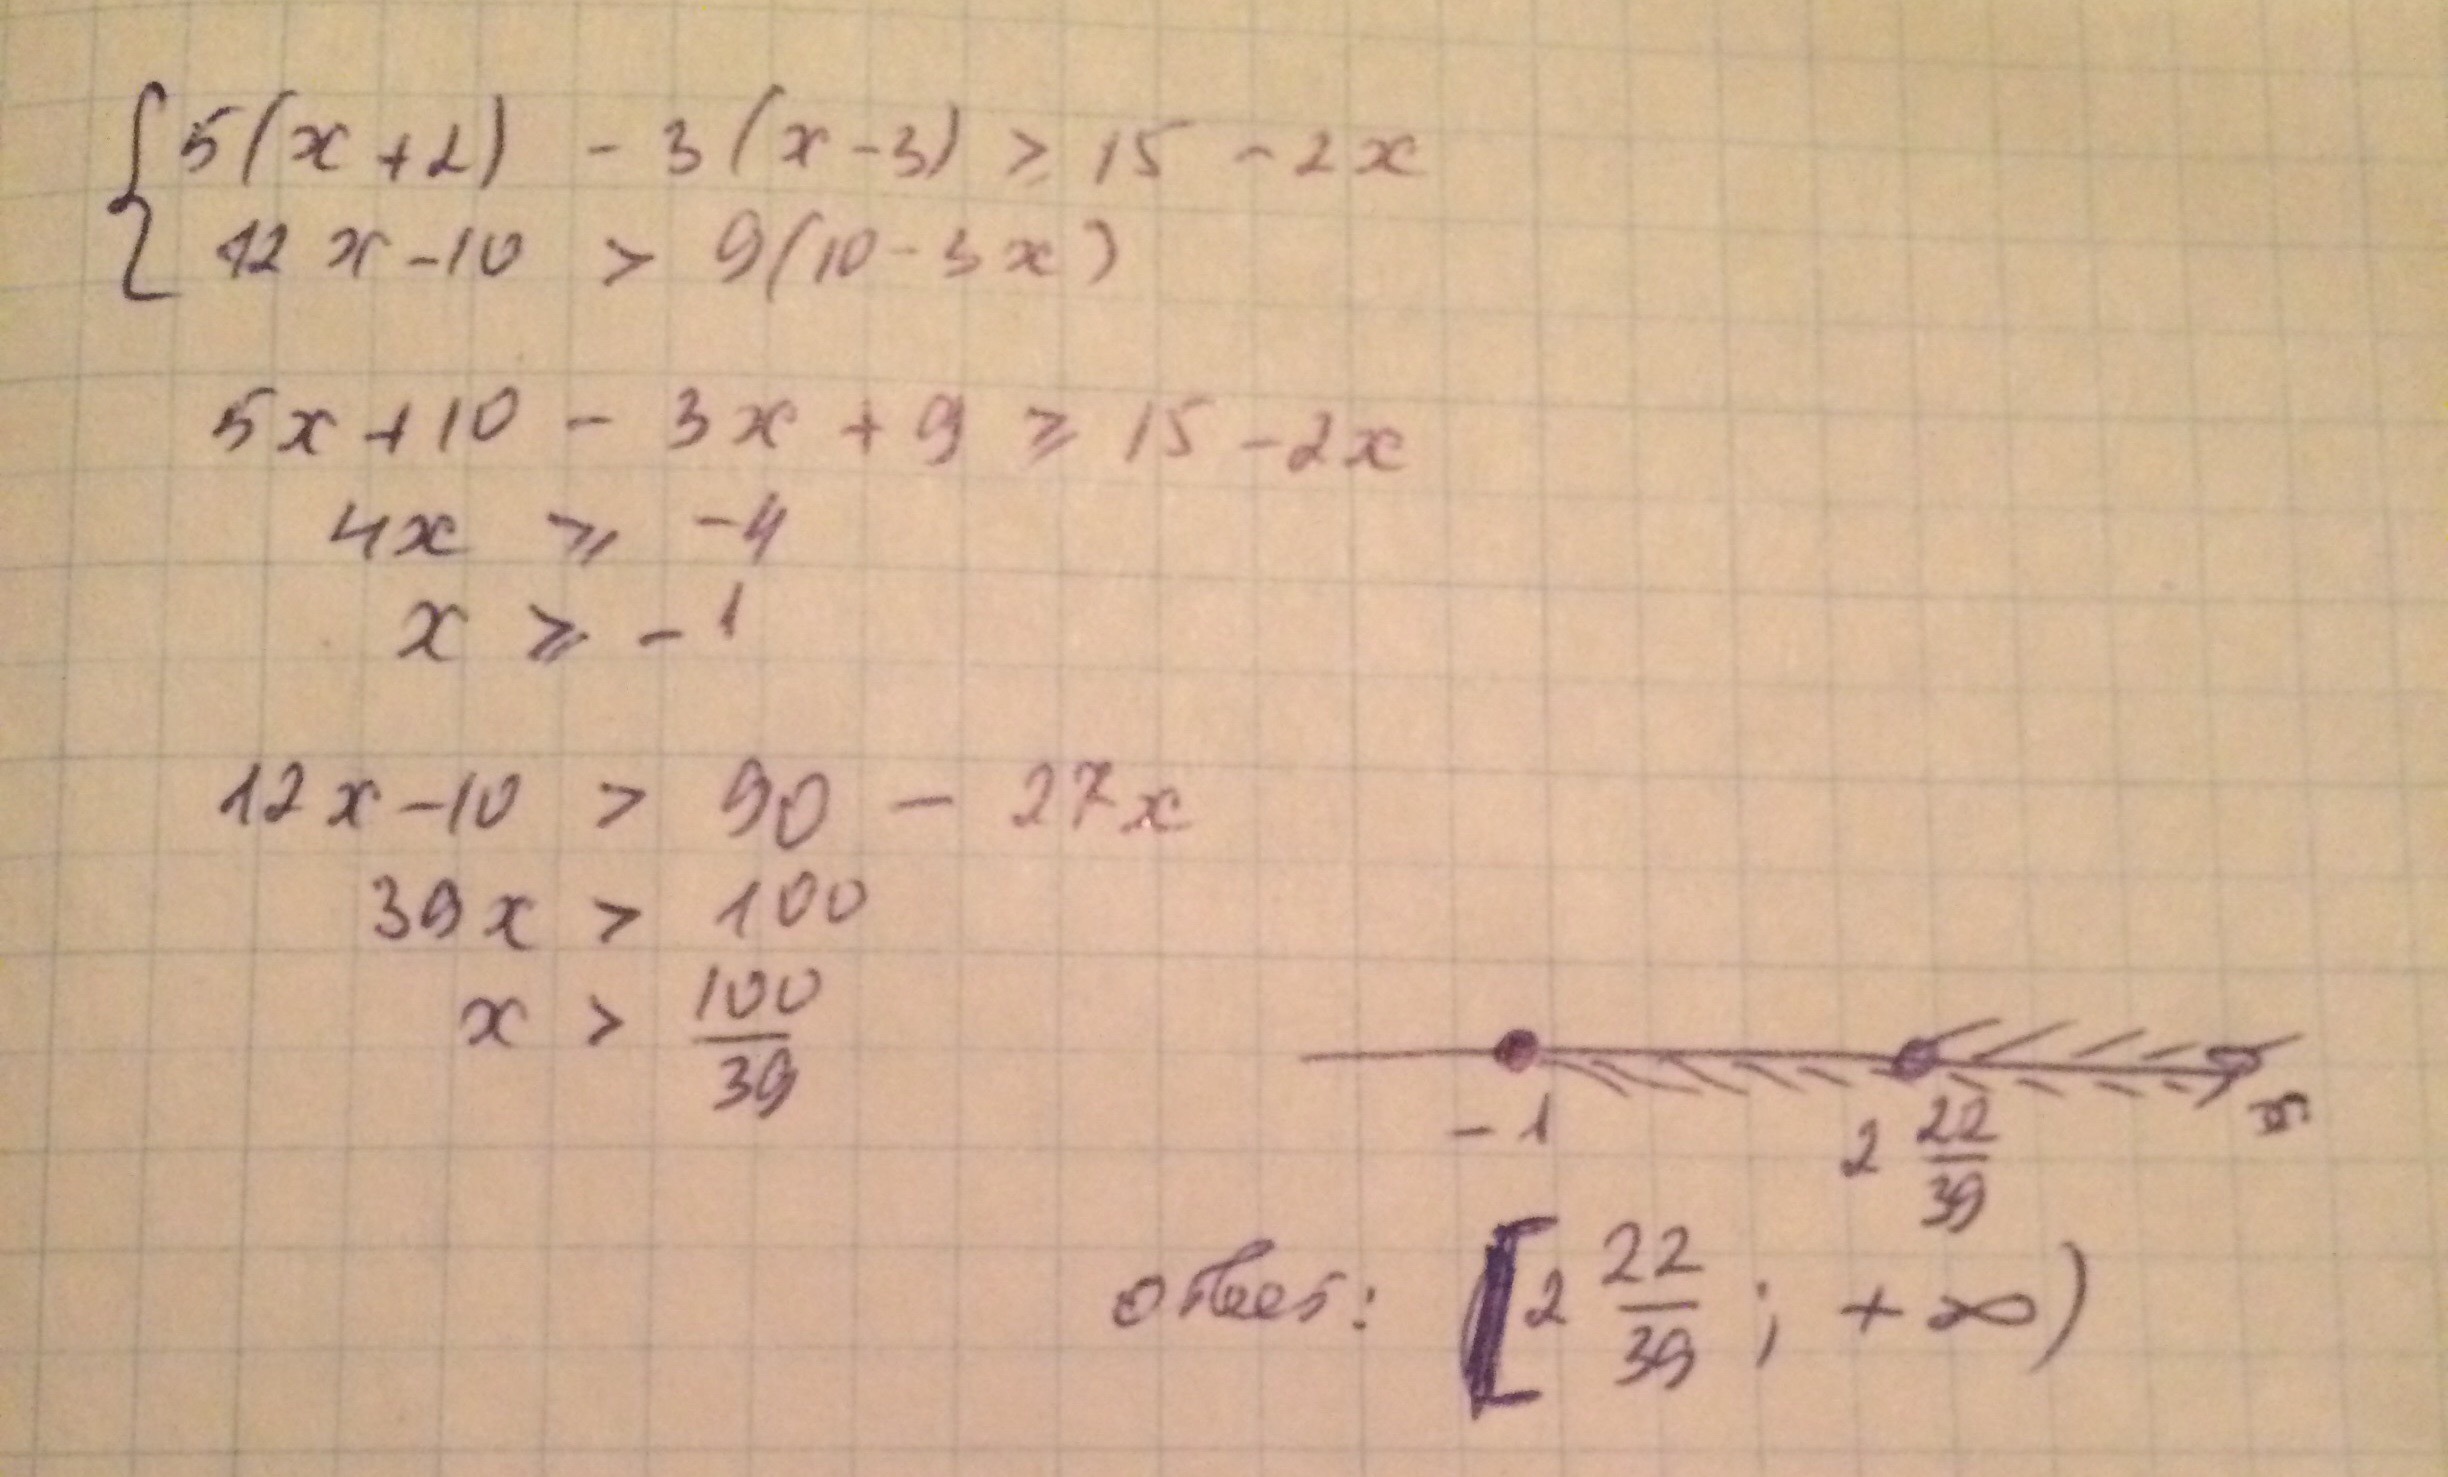 { 5(x+2) - 3(x-3) ⩾ 15 - 2x
12x-10 > 9(10-3x)
5x+10 - 3x + 9 ⩾ 15 - 2x
4x ⩾ -4
x ⩾ -1
12x-10 > 90 - 27x
39x > 100
x > 100/39
-1 2 22/39 x
ответ: [2 22/39 ; +∞)